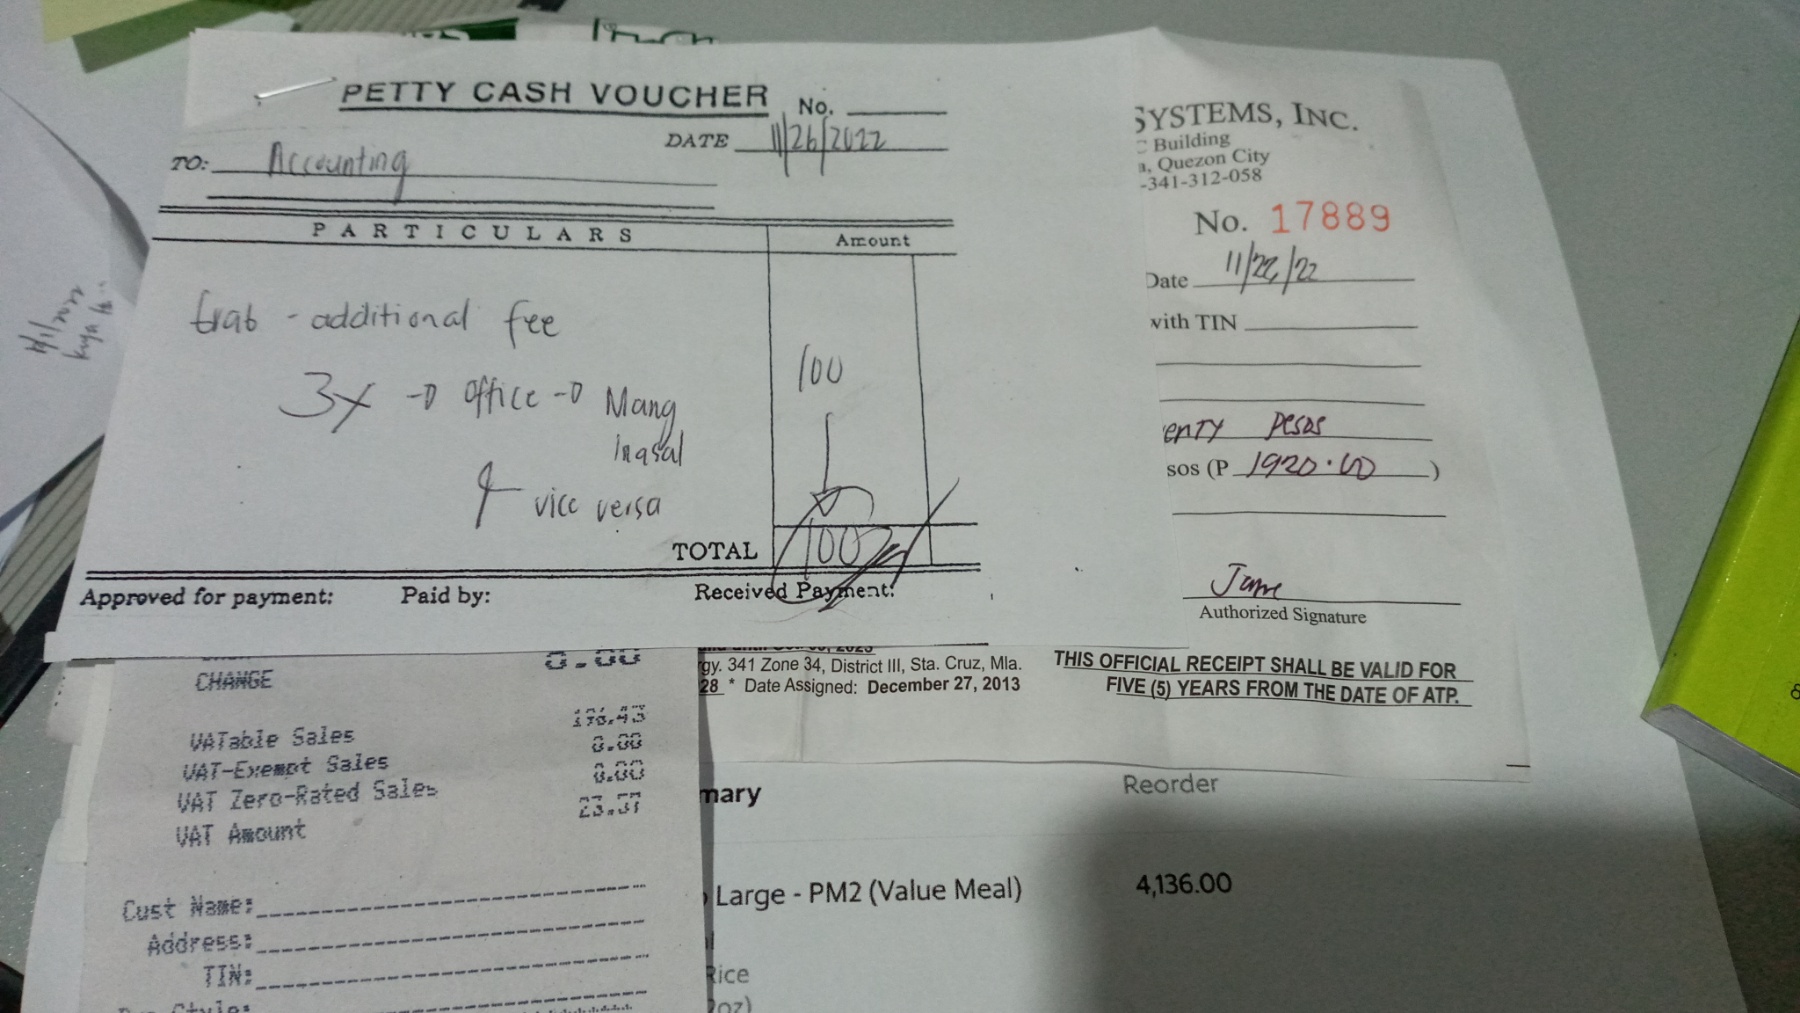 PETTY CASH VOUCHER
No.
DATE 11/26/2022
TO: Accounting
PARTICULARS
Amount
Grab - additional fee
3x → Office → Mang
Inasal
100
& vice versa
TOTAL 100
Approved for payment:
Paid by:
Received Payment:
SYSTEMS, INC.
Building
, Quezon City
-341-312-058
No. 17889
Date 11/22/22
with TIN
enty Pesos
sos (P 1920.00 )
Jane
Authorized Signature
gy. 341 Zone 34, District III, Sta. Cruz, Mla.
28 * Date Assigned: December 27, 2013
THIS OFFICIAL RECEIPT SHALL BE VALID FOR
FIVE (5) YEARS FROM THE DATE OF ATP.
0.00
CHANGE
VATable Sales 196.43
VAT-Exempt Sales 0.00
VAT Zero-Rated Sales 0.00
VAT Amount 23.57
Cust Name:
Address:
TIN:
Style:
mary
Reorder
Large - PM2 (Value Meal)
4,136.00
Rice
oz)